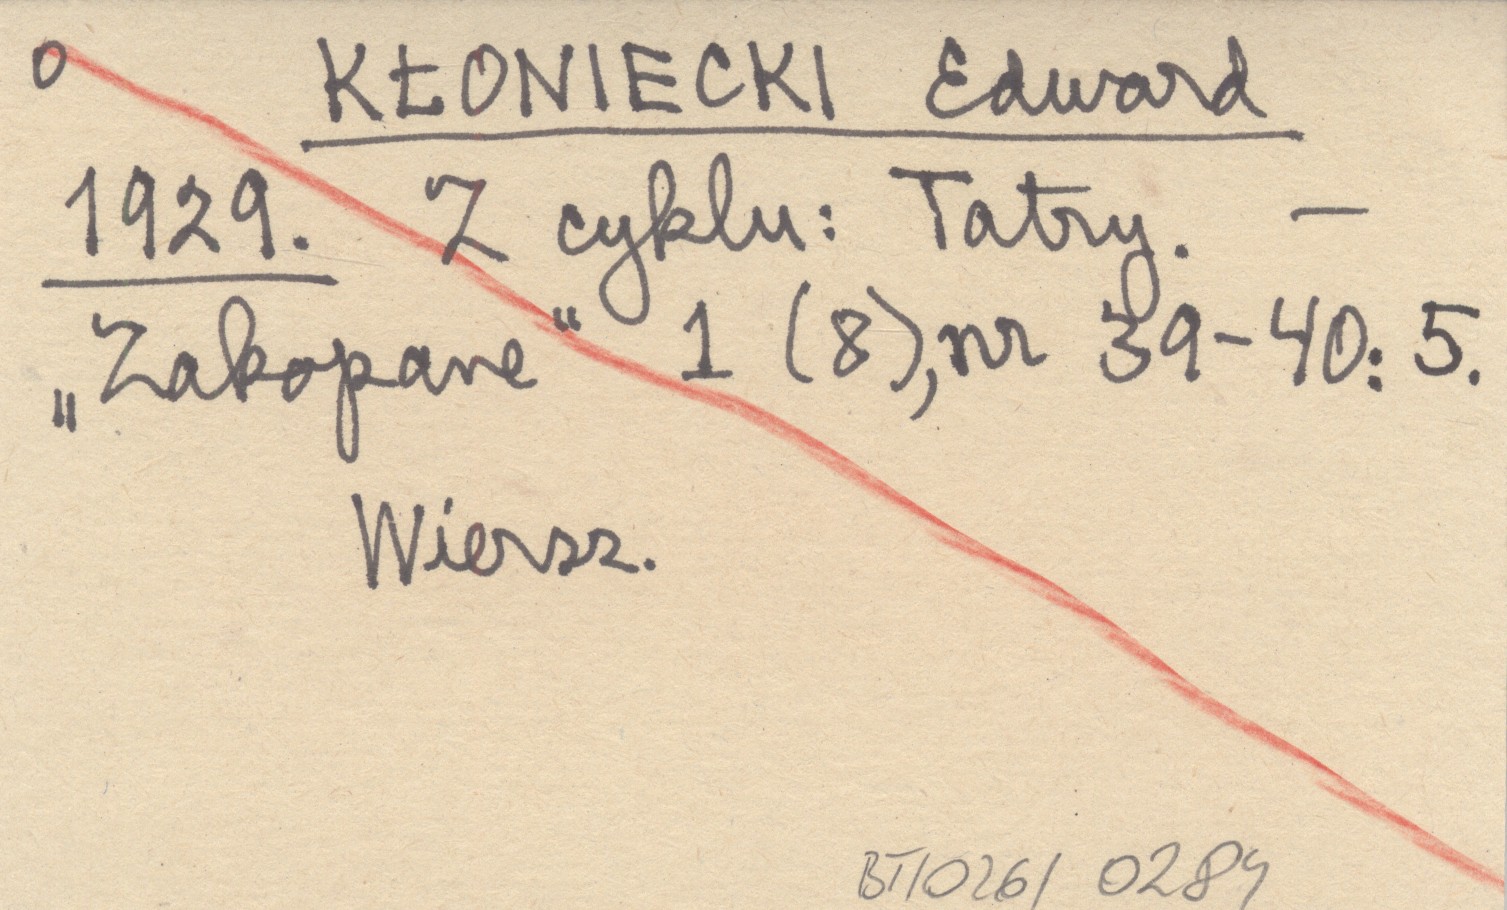 o KŁONIECKI Edward
1929. Z cyklu: Tatry. –
„Zakopane" 1 (8), nr 39-40: 5.
Wiersz.
BT/026/ 0284